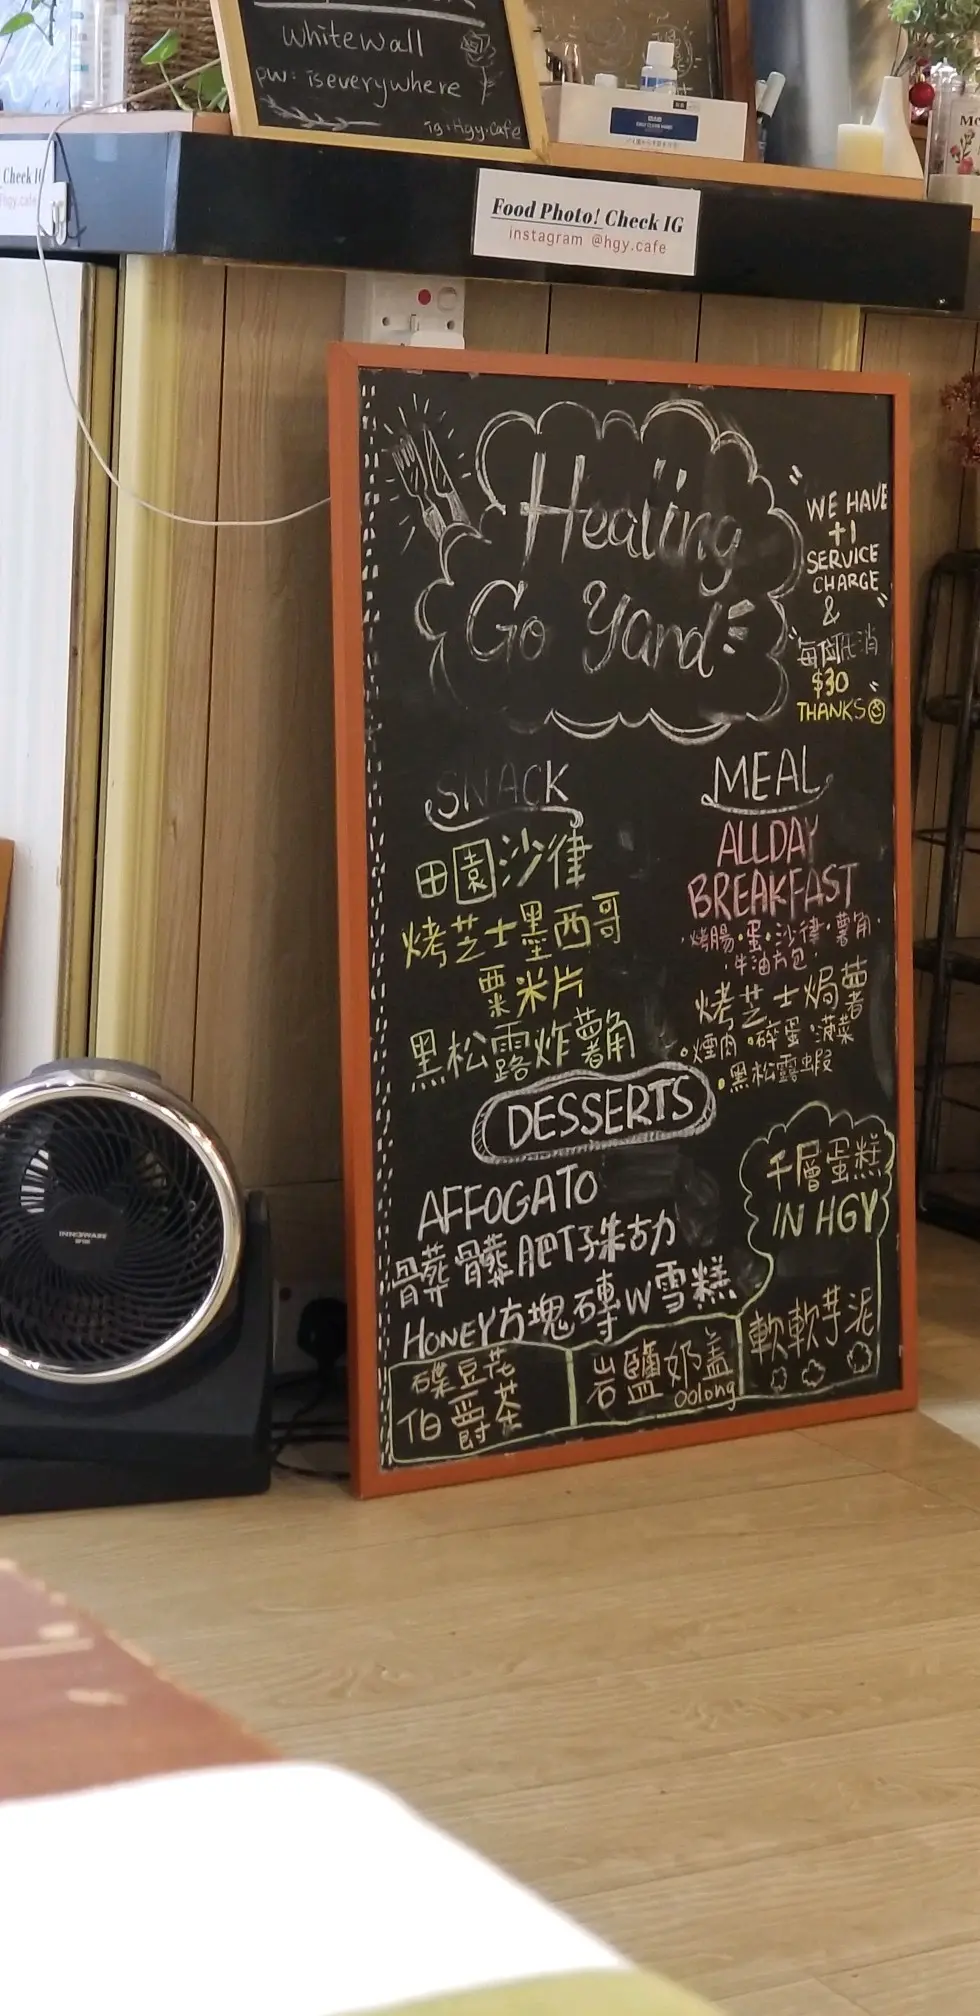 whitewall
pw: iseverywhere
ig:Hgy.cafe
Check IG
hgy.cafe
Food Photo! Check IG
instagram @hgy.cafe
Healing
Go Yard
WE HAVE
+1
SERVICE
CHARGE
&
每個低消
$30
THANKS
SNACK
田園沙律
烤芝士墨西哥
粟米片
黑松露炸薯角
MEAL
ALLDAY
BREAKFAST
·烤腸·蛋·沙律·薯角·
·牛油方包·
烤芝士焗薯
·煙肉·碎蛋·菠菜
·黑松露蝦
DESSERTS
AFFOGATO
髒髒肥T子朱古力
HONEY方塊磚W雪糕
千層蛋糕
IN HGY
豆花
伯爵茶
岩鹽奶盖
Oolong
軟軟芋泥
INNOWARE